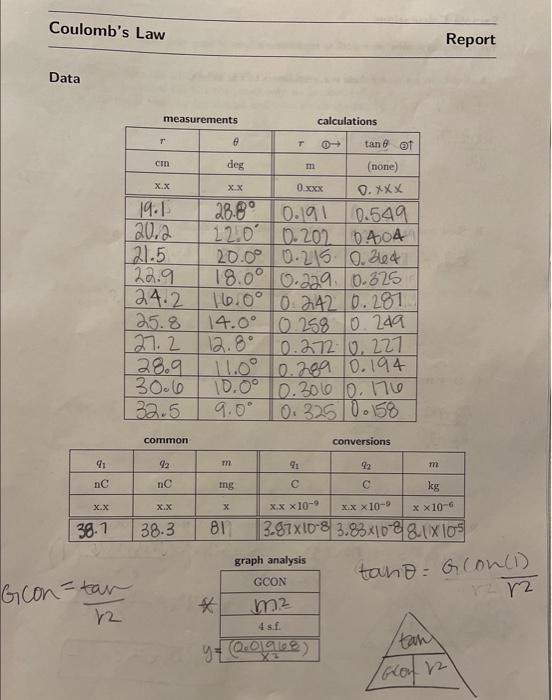 Coulomb's Law
Report
Data
measurements calculations
r θ r ①→ tan θ ①↑
cm deg m (none)
x.x x.x 0.xxx 0.xxx
19.1 28.8° 0.191 0.549
20.2 22.0° 0.202 0.404
21.5 20.0° 0.215 0.364
22.9 18.0° 0.229 0.325
24.2 16.0° 0.242 0.287
25.8 14.0° 0.258 0.249
27.2 12.8° 0.272 0.227
28.9 11.0° 0.289 0.194
30.6 10.0° 0.306 0.176
32.5 9.0° 0.325 0.158
common conversions
q₁ q₂ m q₁ q₂ m
nC nC mg C C kg
x.x x.x x x.x ×10⁻⁹ x.x ×10⁻⁹ x ×10⁻⁶
38.7 38.3 81 3.87x10-8 3.83x10-8 8.1x10-5
graph analysis
GCON
* m2
4 s.f.
y= (0.01968)/x²
Gcon = tan/r2
tanθ = Gcon(1)/r2
tan
Gcon r2